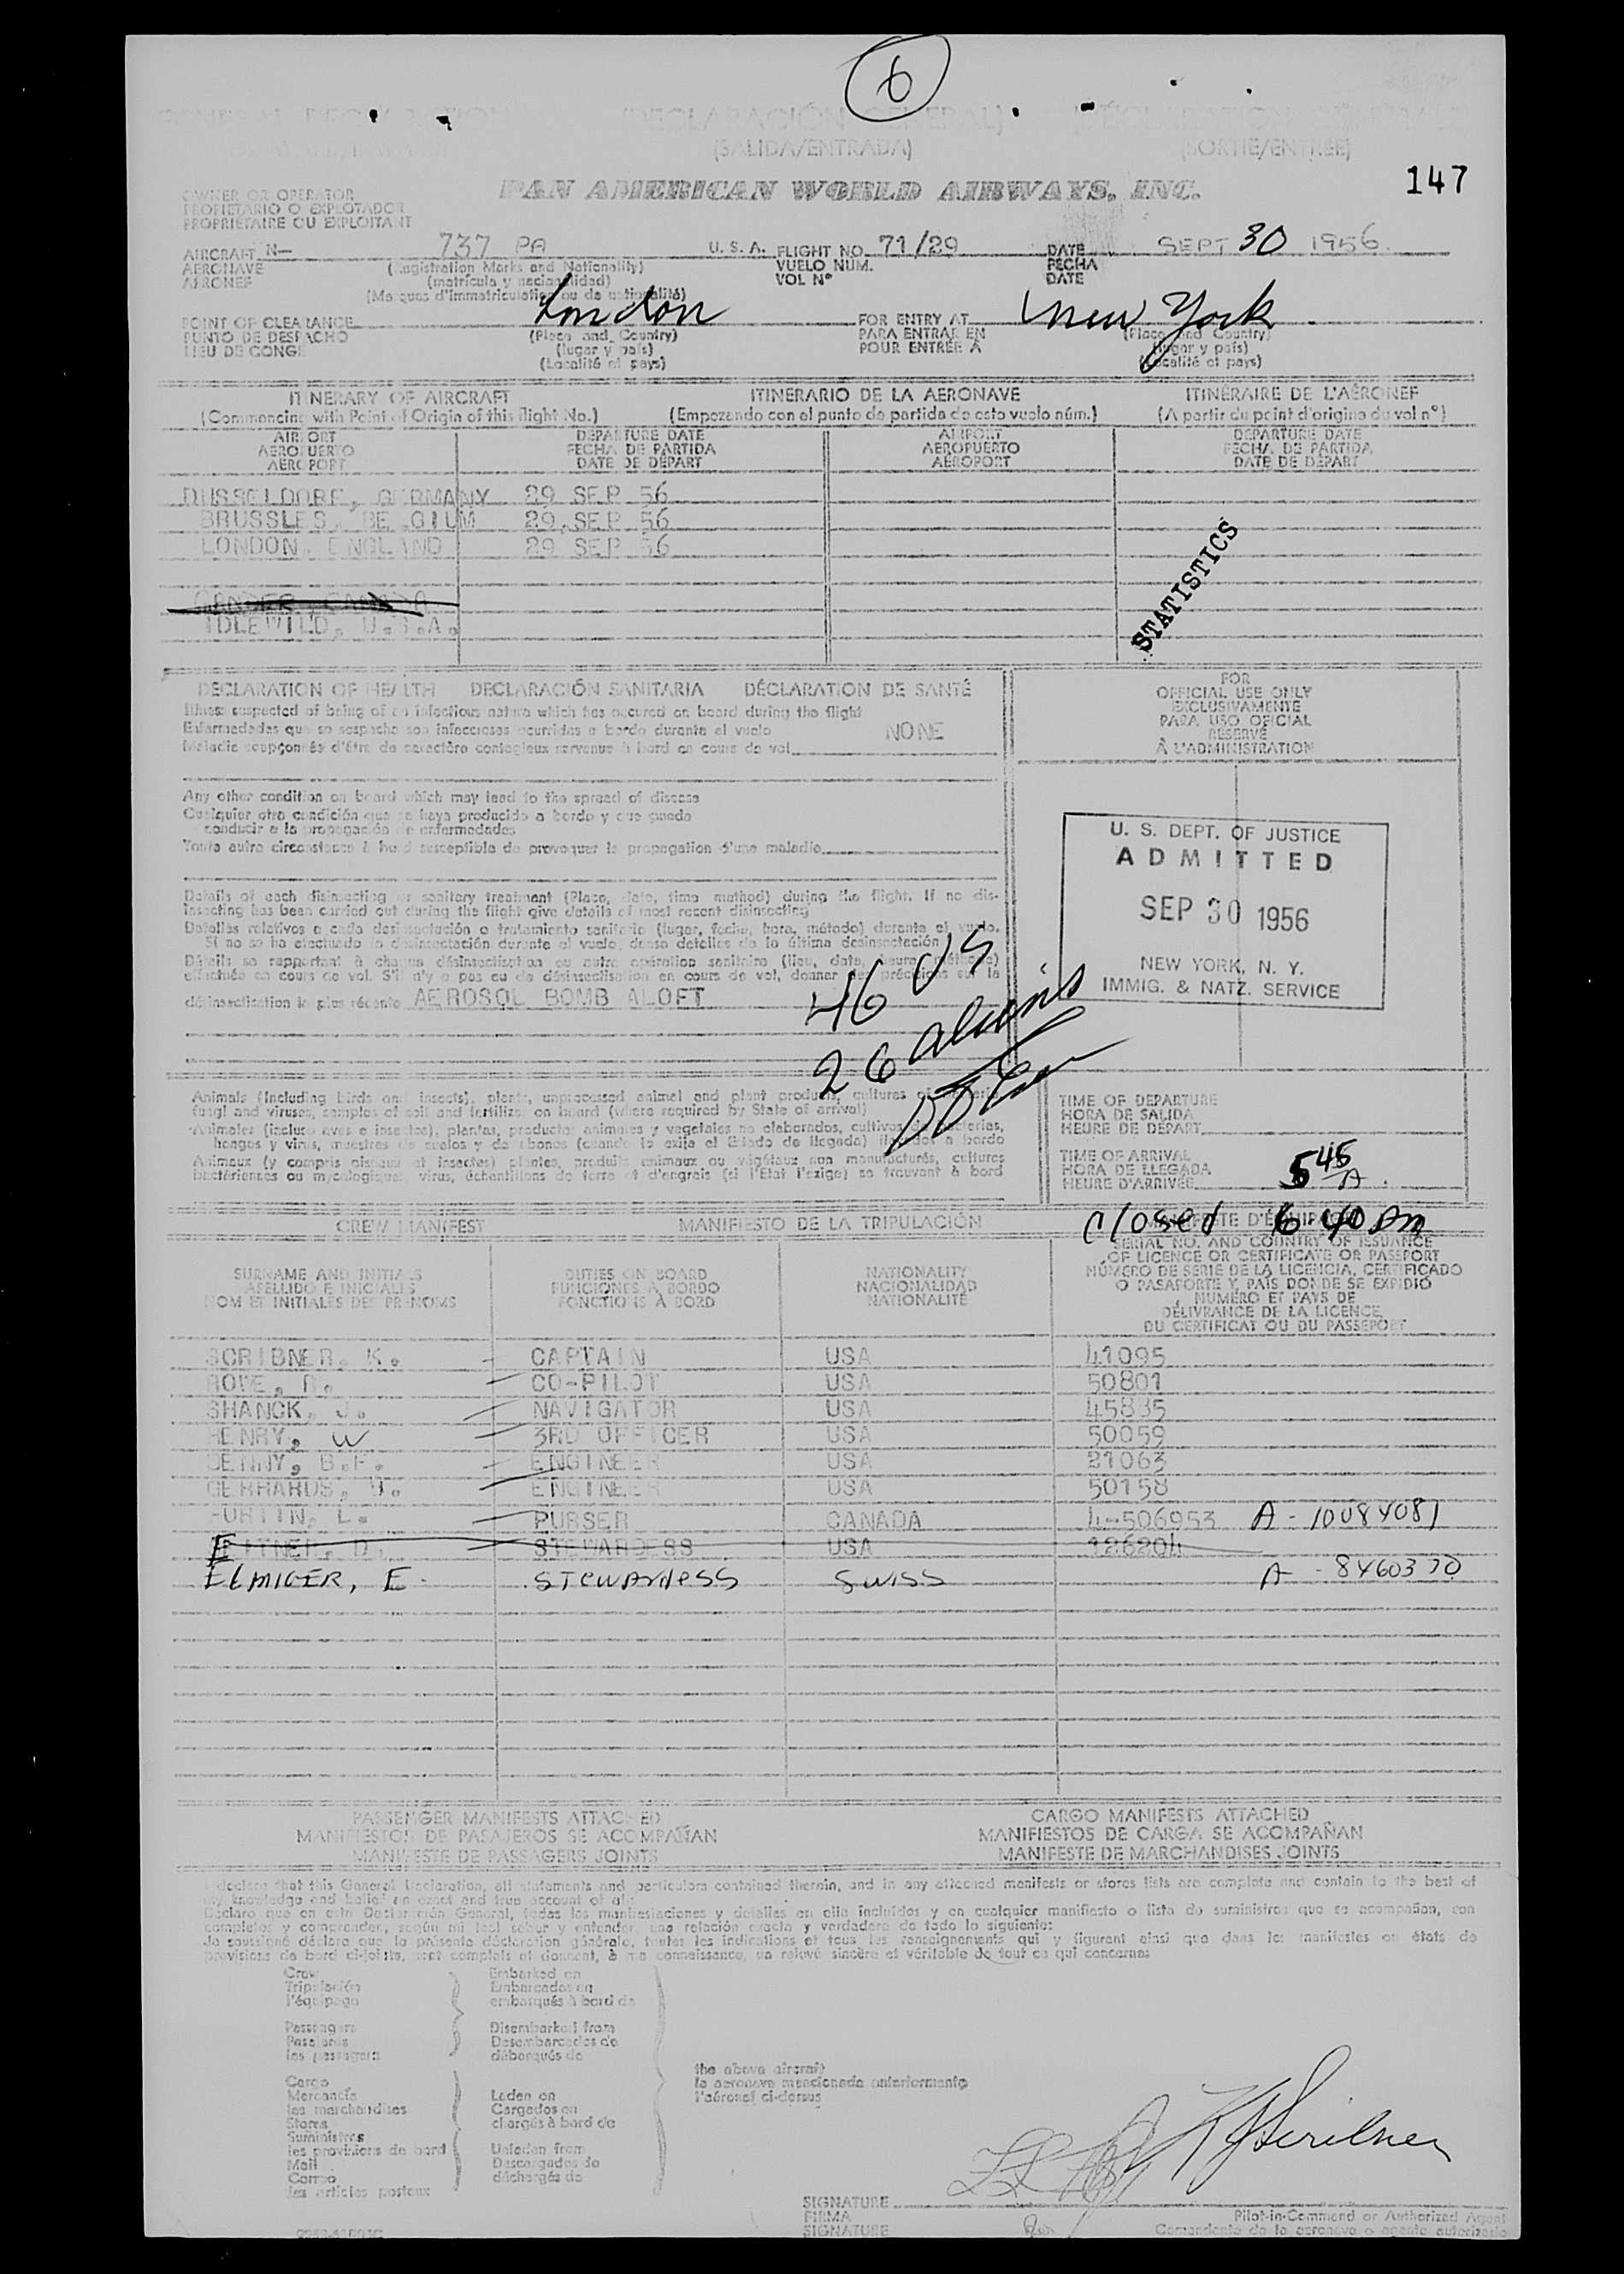 6
(DECLARACIÓN GENERAL)
(SALIDA/ENTRADA) (SORTIE/ENTRÉE)
147
PAN AMERICAN WORLD AIRWAYS, INC.
OWNER OR OPERATOR
PROPIETARIO O EXPLOTADOR
PROPRIÉTAIRE OU EXPLOITANT
AIRCRAFT N— 737 PA U. S. A. FLIGHT NO. 71/29 DATE SEPT 30 1956
AERONAVE (Registration Marks and Nationality) VUELO NUM. FECHA
AÉRONEF (matrícula y nacionalidad) VOL Nº DATE
(Marques d'immatriculation ou de nationalité)
POINT OF CLEARANCE London FOR ENTRY AT New York
PUNTO DE DESPACHO (Place and Country) PARA ENTRAR EN (Place and Country)
LIEU DE CONGÉ (lugar y país) POUR ENTRÉE À (lugar y país)
(Localité et pays) (Localité et pays)
ITINERARY OF AIRCRAFT ITINERARIO DE LA AERONAVE ITINÉRAIRE DE L'AÉRONEF
(Commencing with Point of Origin of this flight No.) (Empezando con el punto de partida de esto vuelo núm.) (A partir du point d'origine du vol nº)
AIRPORT DEPARTURE DATE AIRPORT DEPARTURE DATE
AEROPUERTO FECHA DE PARTIDA AEROPUERTO FECHA DE PARTIDA
AÉROPORT DATE DE DÉPART AÉROPORT DATE DE DÉPART
DUSSELDORF, GERMANY 29 SEP 56
BRUSSLES, BELGIUM 29 SEP 56
LONDON, ENGLAND 29 SEP 56
STATISTICS
GANDER, CANADA
IDLEWILD, U.S.A.
DECLARATION OF HEALTH DECLARACIÓN SANITARIA DÉCLARATION DE SANTÉ
Illness suspected of being of an infectious nature which has occured on board during the flight
Enfermedades que se sospecha son infecciosas ocurridas a bordo durante el vuelo NONE
Maladie soupçonnée d'être de caractère contagieux survenue à bord en cours de vol
FOR
OFFICIAL USE ONLY
EXCLUSIVAMENTE
PARA USO OFICIAL
RESERVÉ
À L'ADMINISTRATION
Any other condition on board which may lead to the spread of disease
Cualquier otra condición que se haya producido a bordo y que puede
conducir a la propagación de enfermedades
Toute autre circonstance à bord susceptible de provoquer la propagation d'une maladie
U. S. DEPT. OF JUSTICE
ADMITTED
SEP 30 1956
NEW YORK, N. Y.
IMMIG. & NATZ. SERVICE
Details of each disinsecting or sanitary treatment (Place, date, time method) during the flight. If no dis-
insecting has been carried out during the flight give details of most recent disinsecting
Detalles relativos a cada desinsectación o tratamiento sanitario (lugar, fecha, hora, método) durante el vuelo.
Si no se ha efectuado la desinsectación durante el vuelo, dense detalles de la última desinsectación
Détails se rapportant à chaque désinsectisation ou autre opération sanitaire (lieu, date, heure, méthode)
effectuée en cours de vol. S'il n'y a pas eu de désinsectisation en cours de vol, donner des précisions sur la
désinsectisation la plus récente AEROSOL BOMB ALOFT
46 US
26 aliens
Animals (including birds and insects), plants, unprocessed animal and plant products, cultures of bacteria,
fungi and viruses, samples of soil and fertilizer on board (where required by State of arrival)
Animales (incluso aves e insectos), plantas, productos animales y vegetales no elaborados, cultivos de bacterias,
hongos y virus, muestras de suelos y de abonos (cuando lo exija el Estado de llegada) llevados a bordo
Animaux (y compris oiseaux et insectes) plantes, produits animaux ou végétaux non manufacturés, cultures
bactériennes ou mycologiques, virus, échantillons de terre et d'engrais (si l'État l'exige) se trouvant à bord
TIME OF DEPARTURE
HORA DE SALIDA
HEURE DE DÉPART
TIME OF ARRIVAL
HORA DE LLEGADA 5 45 A
HEURE D'ARRIVÉE
closed 6 40 Am
CREW MANIFEST MANIFIESTO DE LA TRIPULACIÓN MANIFESTE D'ÉQUIPAGE
SURNAME AND INITIALS DUTIES ON BOARD NATIONALITY
APELLIDO E INICIALES FUNCIONES A BORDO NACIONALIDAD
NOM ET INITIALES DES PRÉNOMS FONCTIONS À BORD NATIONALITÉ
SERIAL NO. AND COUNTRY OF ISSUANCE
OF LICENCE OR CERTIFICATE OR PASSPORT
NÚMERO DE SERIE DE LA LICENCIA, CERTIFICADO
O PASAPORTE Y PAÍS DONDE SE EXPIDIÓ
NUMÉRO ET PAYS DE
DÉLIVRANCE DE LA LICENCE,
DU CERTIFICAT OU DU PASSEPORT
SCRIBNER, K. CAPTAIN USA 41095
ROWE, R. CO-PILOT USA 50801
SHANCK, J. NAVIGATOR USA 45835
HENRY, W 3RD OFFICER USA 50059
DENNY, B.F. ENGINEER USA 21063
GERHARDS, ENGINEER USA 50158
L. PURSER CANADA 4-506953 A-10084081
D. STEWARDESS USA 126204
ELMIGER, E. STEWARDESS SWISS A-8460370
PASSENGER MANIFESTS ATTACHED CARGO MANIFESTS ATTACHED
MANIFIESTOS DE PASAJEROS SE ACOMPAÑAN MANIFIESTOS DE CARGA SE ACOMPAÑAN
MANIFESTE DE PASSAGERS JOINTS MANIFESTE DE MARCHANDISES JOINTS
I declare that this General Declaration, all statements and particulars contained therein, and in any attached manifests or stores lists are complete and contain to the best of
my knowledge and belief an exact and true account of all:
Declaro que en esta Declaración General, todas las manifestaciones y detalles en ella incluidos y en cualquier manifiesto o lista de suministros que se acompañan, son
completos y comprenden, según mi leal saber y entender, una relación exacta y verdadera de todo lo siguiente:
Je soussigné déclare que la présente déclaration générale, toutes les indications et tous les renseignements qui y figurent ainsi que dans les manifestes ou états de
provisions de bord ci-joints, sont complets et donnent, à ma connaissance, un relevé sincère et véritable de tout ce qui concerne:
Crew Embarked on
Tripulación Embarcados en
l'équipage embarqués à bord de
Passengers Disembarked from
Pasajeros Desembarcados de
les passagers débarqués de
the above aircraft
la aeronave mencionada anteriormente
l'aéronef ci-dessus
Cargo
Mercancía Laden on
les marchandises Cargados en
Stores chargés à bord de
Suministros
les provisions de bord Unladen from
Mail Descargados de
Correo déchargés de
des articles postaux
K Scribner
SIGNATURE
FIRMA Pilot-in-Command or Authorized Agent
SIGNATURE Comandante de la aeronave o agente autorizado